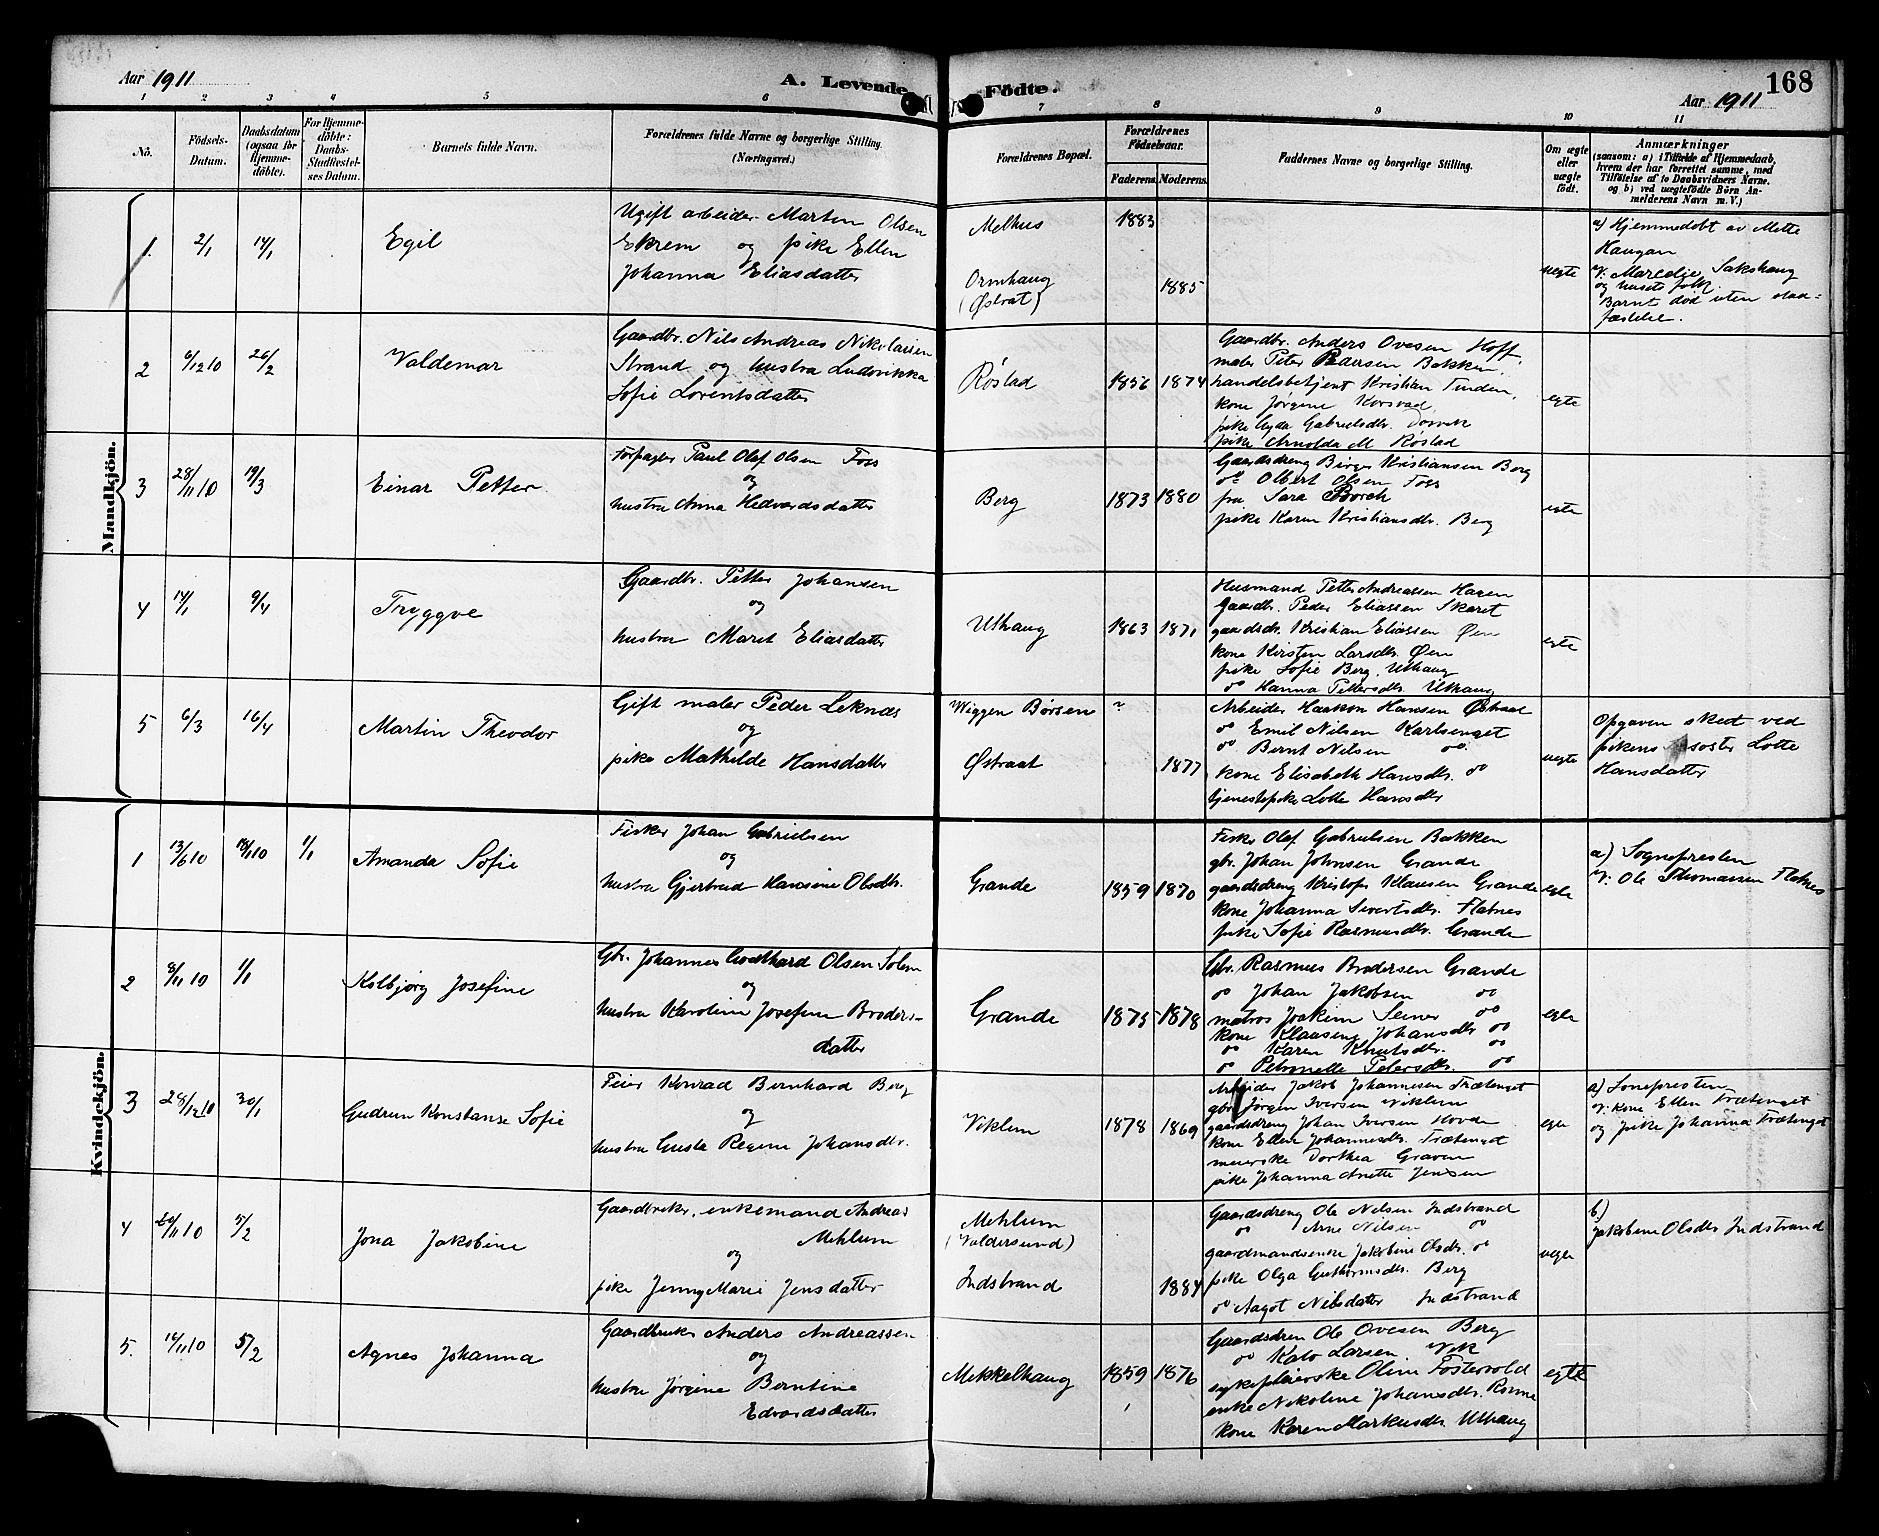 Aar 1911
A. Levende
Födte.
Aar 1911
168
1 2 3 4 5 6 7 8 9 10 11
No.
Födsels-
Datum.
Daabsdatum
(ogsaa for
Hjemme-
döbte).
For Hjemme-
döbte:
Daabs-
Stadfæstel-
ses Datum.
Barnets fulde Navn.
Forældrenes fulde Navne og borgerlige Stilling.
(Næringsvei.)
Forældrenes Bopæl.
Forældrenes
Födselsaar.
Faderens. Moderens.
Faddernes Navne og borgerlige Stilling.
Om ægte
eller
uægte
födt.
Anmærkninger
(saasom: a) i Tilfælde af Hjemmedaab,
hvem der har forrettet samme, med
Tilföielse af to Daabsvidners Navne.
og b) ved uægtefödte Börn An-
melderens Navn m. V.)
Mandkjön.
1. 2/1 14/1 Egil
Ugift arbeider Martin Olsen
Ekrem og pike Ellen
Johanna Eliasdatter
Melhus 1883
Ormhaug 1885
(Østrat)
uegte
a) Hjemmedøbt av Mette
Haugan
V: Maredie Sakshaug
og husets folk.
Barnet død uten stad-
fæstelse.
2 6/12 10 26/2 Valdemar
Gaardbr. Nils Andreas Nikolaisen
Strand og hustru Ludvikka
Sofie Lorentsdatter
Røstad 1856 1874
Gaardbr. Anders Ovesen Hoff
maler Peter Pedersen Bakken,
handelsbetjent Kristian Tinden,
kone Jørgine Korsvad,
pike Gabrielsdtr.
pike Arnolda M Røstad
egte
3 28/11 10 19/3 Einar Petter
Forpagter Paul Olaf Olsen Foss
og
hustru Anna Hedvardsdatter
Berg 1873 1880
Gaardsdreng Birger Kristiansen Berg
do Olbert Olsen Foss
fru Sara Borch
pike Karen Kristiansdtr. Berg
egte
4 14/1 9/4 Tryggve
Gaardbr. Petter Johansen
og
hustru Maret Eliasdatter
Uthaug 1863 1871
Husmand Petter Andreassen Hagen
Gaardbr. Peder Eliassen Skaret
gaardsdr. Kristian Eliassen Øien
kone Kirsten Larsdtr. Øien
pike Sofie Berg, Uthaug
do Hanna Pettersdtr. Uthaug
egte
5 6/3 16/4 Martin Theodor
Gift maler Peder Leknæs
og
pike Mathilde Hansdatter
Wiggen Børsen ?
Østraat 1877
Arbeider Haakon Hansen Østraat
do Emil Nilsen Karlsenget
do Bernt Nilsen do
kone Elisabeth Hansdtr. do
tjenestepike Lotte Hansdtr
uegte
Opgaven skedt ved
pikens søster Lotte
Hansdatter
Kvindekjön.
1 13/6 10 1/1 Amanda Sofie
Fisker Johan Gabrielsen
og
hustru Gjertrud Hansine Olsdtr.
Grande 1859 1870
Fisker Olaf Gabrielsen Bakken
gbr. Johan Johnsen Grande
gaardsdreng Kristofer Klausen Grande
kone Johanna Sivertsdtr. Flatnes
pike Sofie Rasmusdtr. Grande
egte
a) Sognepresten
V: Ole Thomassen Flatnes
2 8/11 10 1/1 Kolbjørg Josefine
Gbr. Johannes Gotthard Olsen Solem
og
hustru Karoline Josefine Broders-
datter
Grande 1875 1878
Gbr. Rasmus Brodersen Grande
do Johan Jakobsen do
matros Joakim do
kone Klaasine Johansdtr do
do Karen Knutsdtr. do
do Petronelle Petersdtr. do
egte
3 28/12 10 30/1 Gudrun Konstanse Sofie
Feier Konrad Bernhard Berg
og
hustru Gusta Regine Johansdtr.
Viklem 1878 1869
Arbeider Jakob Johannesen Trætenget
gbr. Jørgen Iversen Viklem
gaardsdreng Johan Iversen Hovde
kone Ellen Johannesdtr. Trætenget
meierske Dorthea Graven
pike Johanna Anette Jensen
egte
a) Sonepresten
V: Kone Ellen Trætenget
og pike Johanna Trætenget
4 20/11 10 5/2 Jona Jakobine
Gaardbruker, enkemand Andreas
Mehlum
og
pike Jenny Marie Jensdatter
Mehlum
(Valdersund)
Indstrand 1884
Gaardsdreng Ole Nilsen Indstrand
do Arne Nilsen do
gaardmandsenke Jakobine Olsdtr. do
pike Olga Guthormsdtr. Berg
do Aagot Nilsdatter Indstrand
uegte
b)
Jakobine Olsdtr Indstrand
5. 14/11 10 5/2 Agnes Johanna
Gaardbruker Anders Andreassen
og
hustru Jørgine Berntine
Edvardsdatter
Mekkelhaug 1859 1876
Gaardsdren Ole Ovesen Berg
do Kato Larsen Vik
sykepleierske Oline Fostervold
enke Nikoline Johansdtr. Rønne
kone Karen Markusdtr. Uthaug
egte